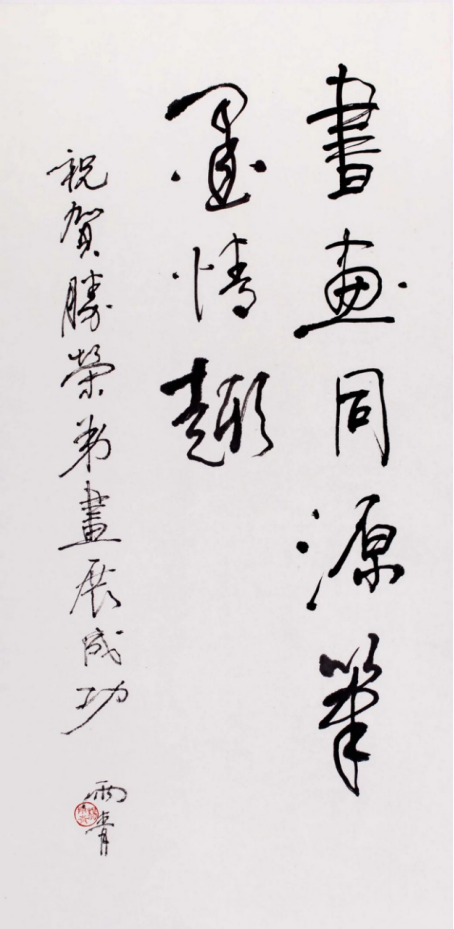 書畫同源筆
墨情趣
祝賀勝榮弟畫展成功
雨青